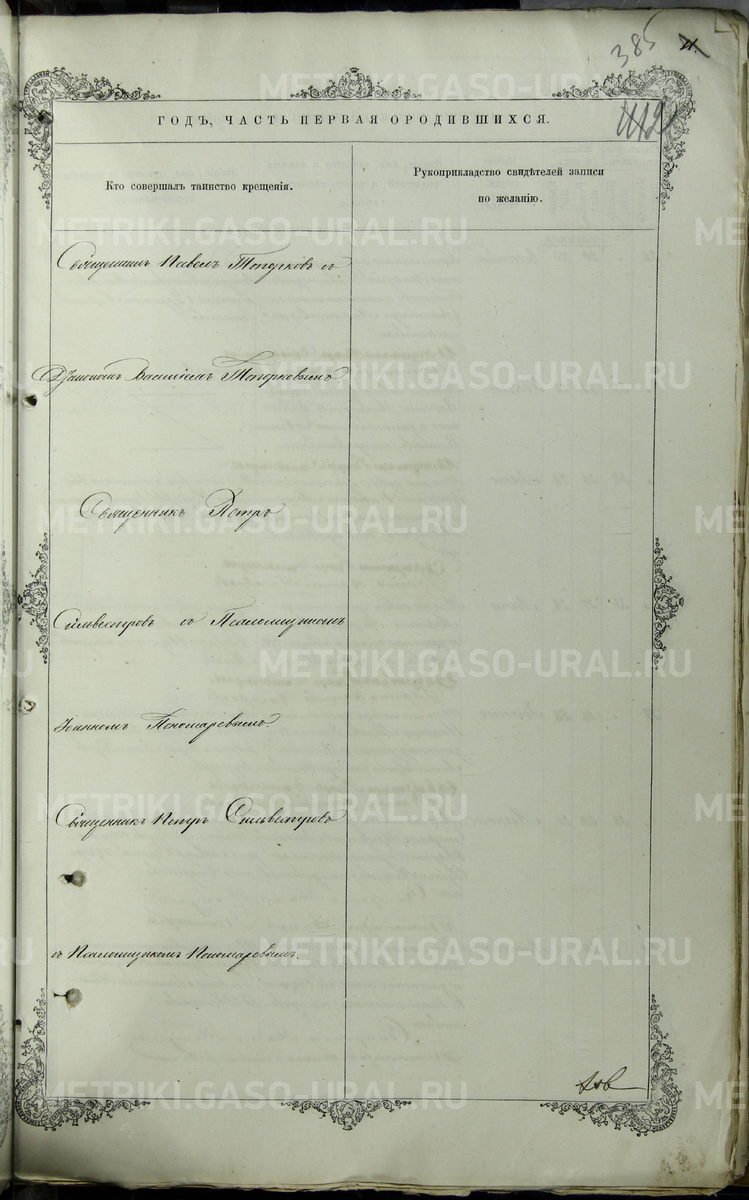 385
11.
112
ГОДЪ, ЧАСТЬ ПЕРВАЯ О РОДИВШИХСЯ.
Кто совершалъ таинство крещенія.
Рукоприкладство свидѣтелей записи
по желанію.
Священникъ Павелъ Топорковъ съ
Діакономъ Василіемъ Топорковымъ.
Священникъ Петръ
Сильвестровъ съ Псаломщикомъ
Іоанномъ Пономаревымъ.
Священникъ Петръ Сильвестровъ
съ Псаломщикомъ Пономаревымъ.
METRIKI.GASO-URAL.RU